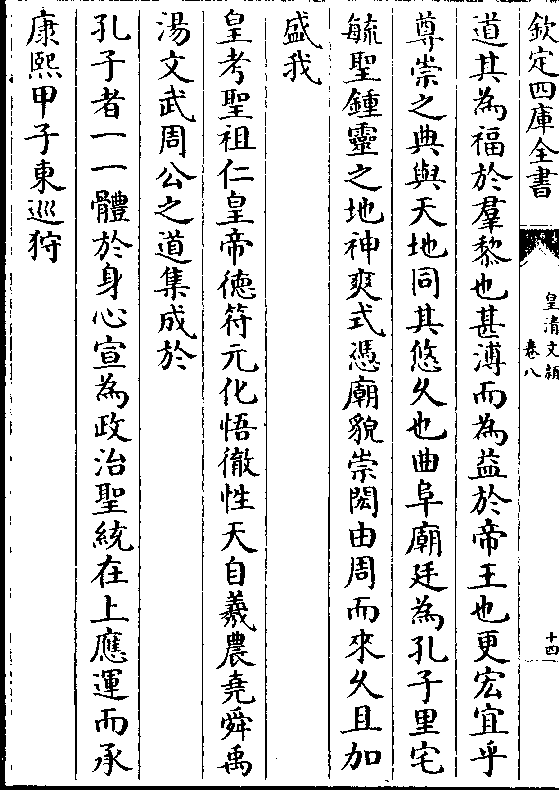 欽定四庫全書
皇清文穎
卷八
十四
道其為福於羣黎也甚溥而為益於帝王也更宏宜乎
尊崇之典與天地同其悠久也曲阜廟廷為孔子里宅
毓聖鍾靈之地神爽式憑廟貌崇閎由周而來久且加
盛我
皇考聖祖仁皇帝德符元化悟徹性天自羲農堯舜禹
湯文武周公之道集成於
孔子者一一體於身心宣為政治聖統在上應運而承
康熙甲子東巡狩